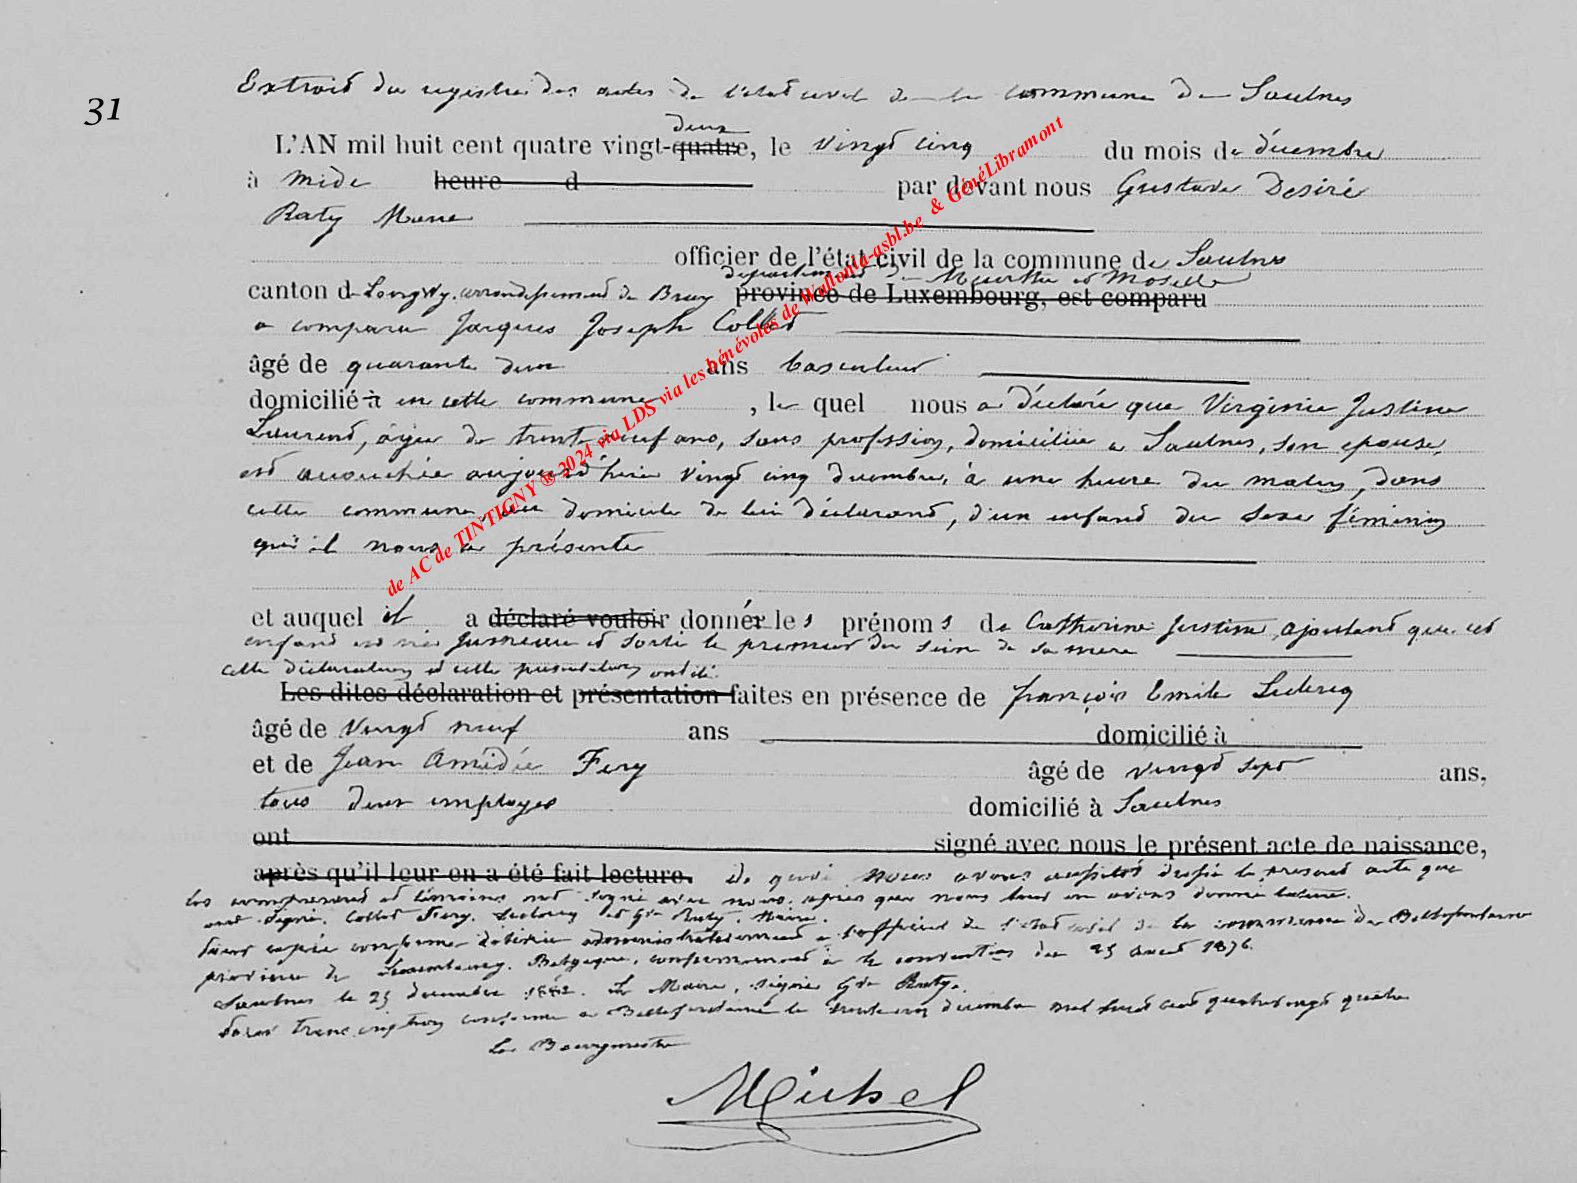 31
Extrait du registre des actes de l'état civil de la commune de Saulnes
deux
L'AN mil huit cent quatre vingt-quatre, le vingt cinq du mois de décembre
à midi heure d par devant nous Gustave Désiré
Raty Maire
officier de l'état civil de la commune de Saulnes
département de Meurthe et Moselle
canton de Longwy, arrondissement de Briey province de Luxembourg, est comparu
a comparu Jacques Joseph Collet
âgé de quarante deux ans basculeur
domicilié à en cette commune, le quel nous a déclaré que Virginie Justine
Laurent, âgée de trente neuf ans, sans profession, domiciliée à Saulnes, son épouse,
est accouchée aujourd'hui vingt cinq décembre, à une heure du matin, dans
cette commune, au domicile de lui déclarant, d'un enfant du sexe féminin
qu'il nous a présenté
et auquel il a déclaré vouloir donner les prénoms de Catherine Justine, ajoutant que cet
enfant est né jumeau et sorti le premier du sein de sa mère
cette déclaration et cette présentation ont été
Les dites déclaration et présentation faites en présence de François Emile Leclercq
âgé de vingt neuf ans domicilié à
et de Jean Amédée Fery âgé de vingt sept ans,
tous deux employés domicilié à Saulnes
ont signé avec nous le présent acte de naissance,
après qu'il leur en a été fait lecture. De quoi nous avons aussitôt dressé le présent acte que
les comparant et témoins ont signé avec nous après que nous leur en avions donné lecture.
ont signé. Collet Fery, Leclercq et Gve Raty, Maire.
Pour copie conforme délivrée administrativement à l'officier de l'état civil de la commune de Bellefontaine
province de Luxembourg, Belgique, conformément à la convention du 25 août 1876.
Saulnes le 25 décembre 1882. Le Maire, signé Gve Raty.
Pour transcription conforme à Bellefontaine le trente un décembre mil huit cent quatre vingt quatre
Le Bourgmestre
Michel
de AC de TINTIGNY ® 2024 via LDS via les bénévoles de Wallonia-asbl.be & GénéLibramont